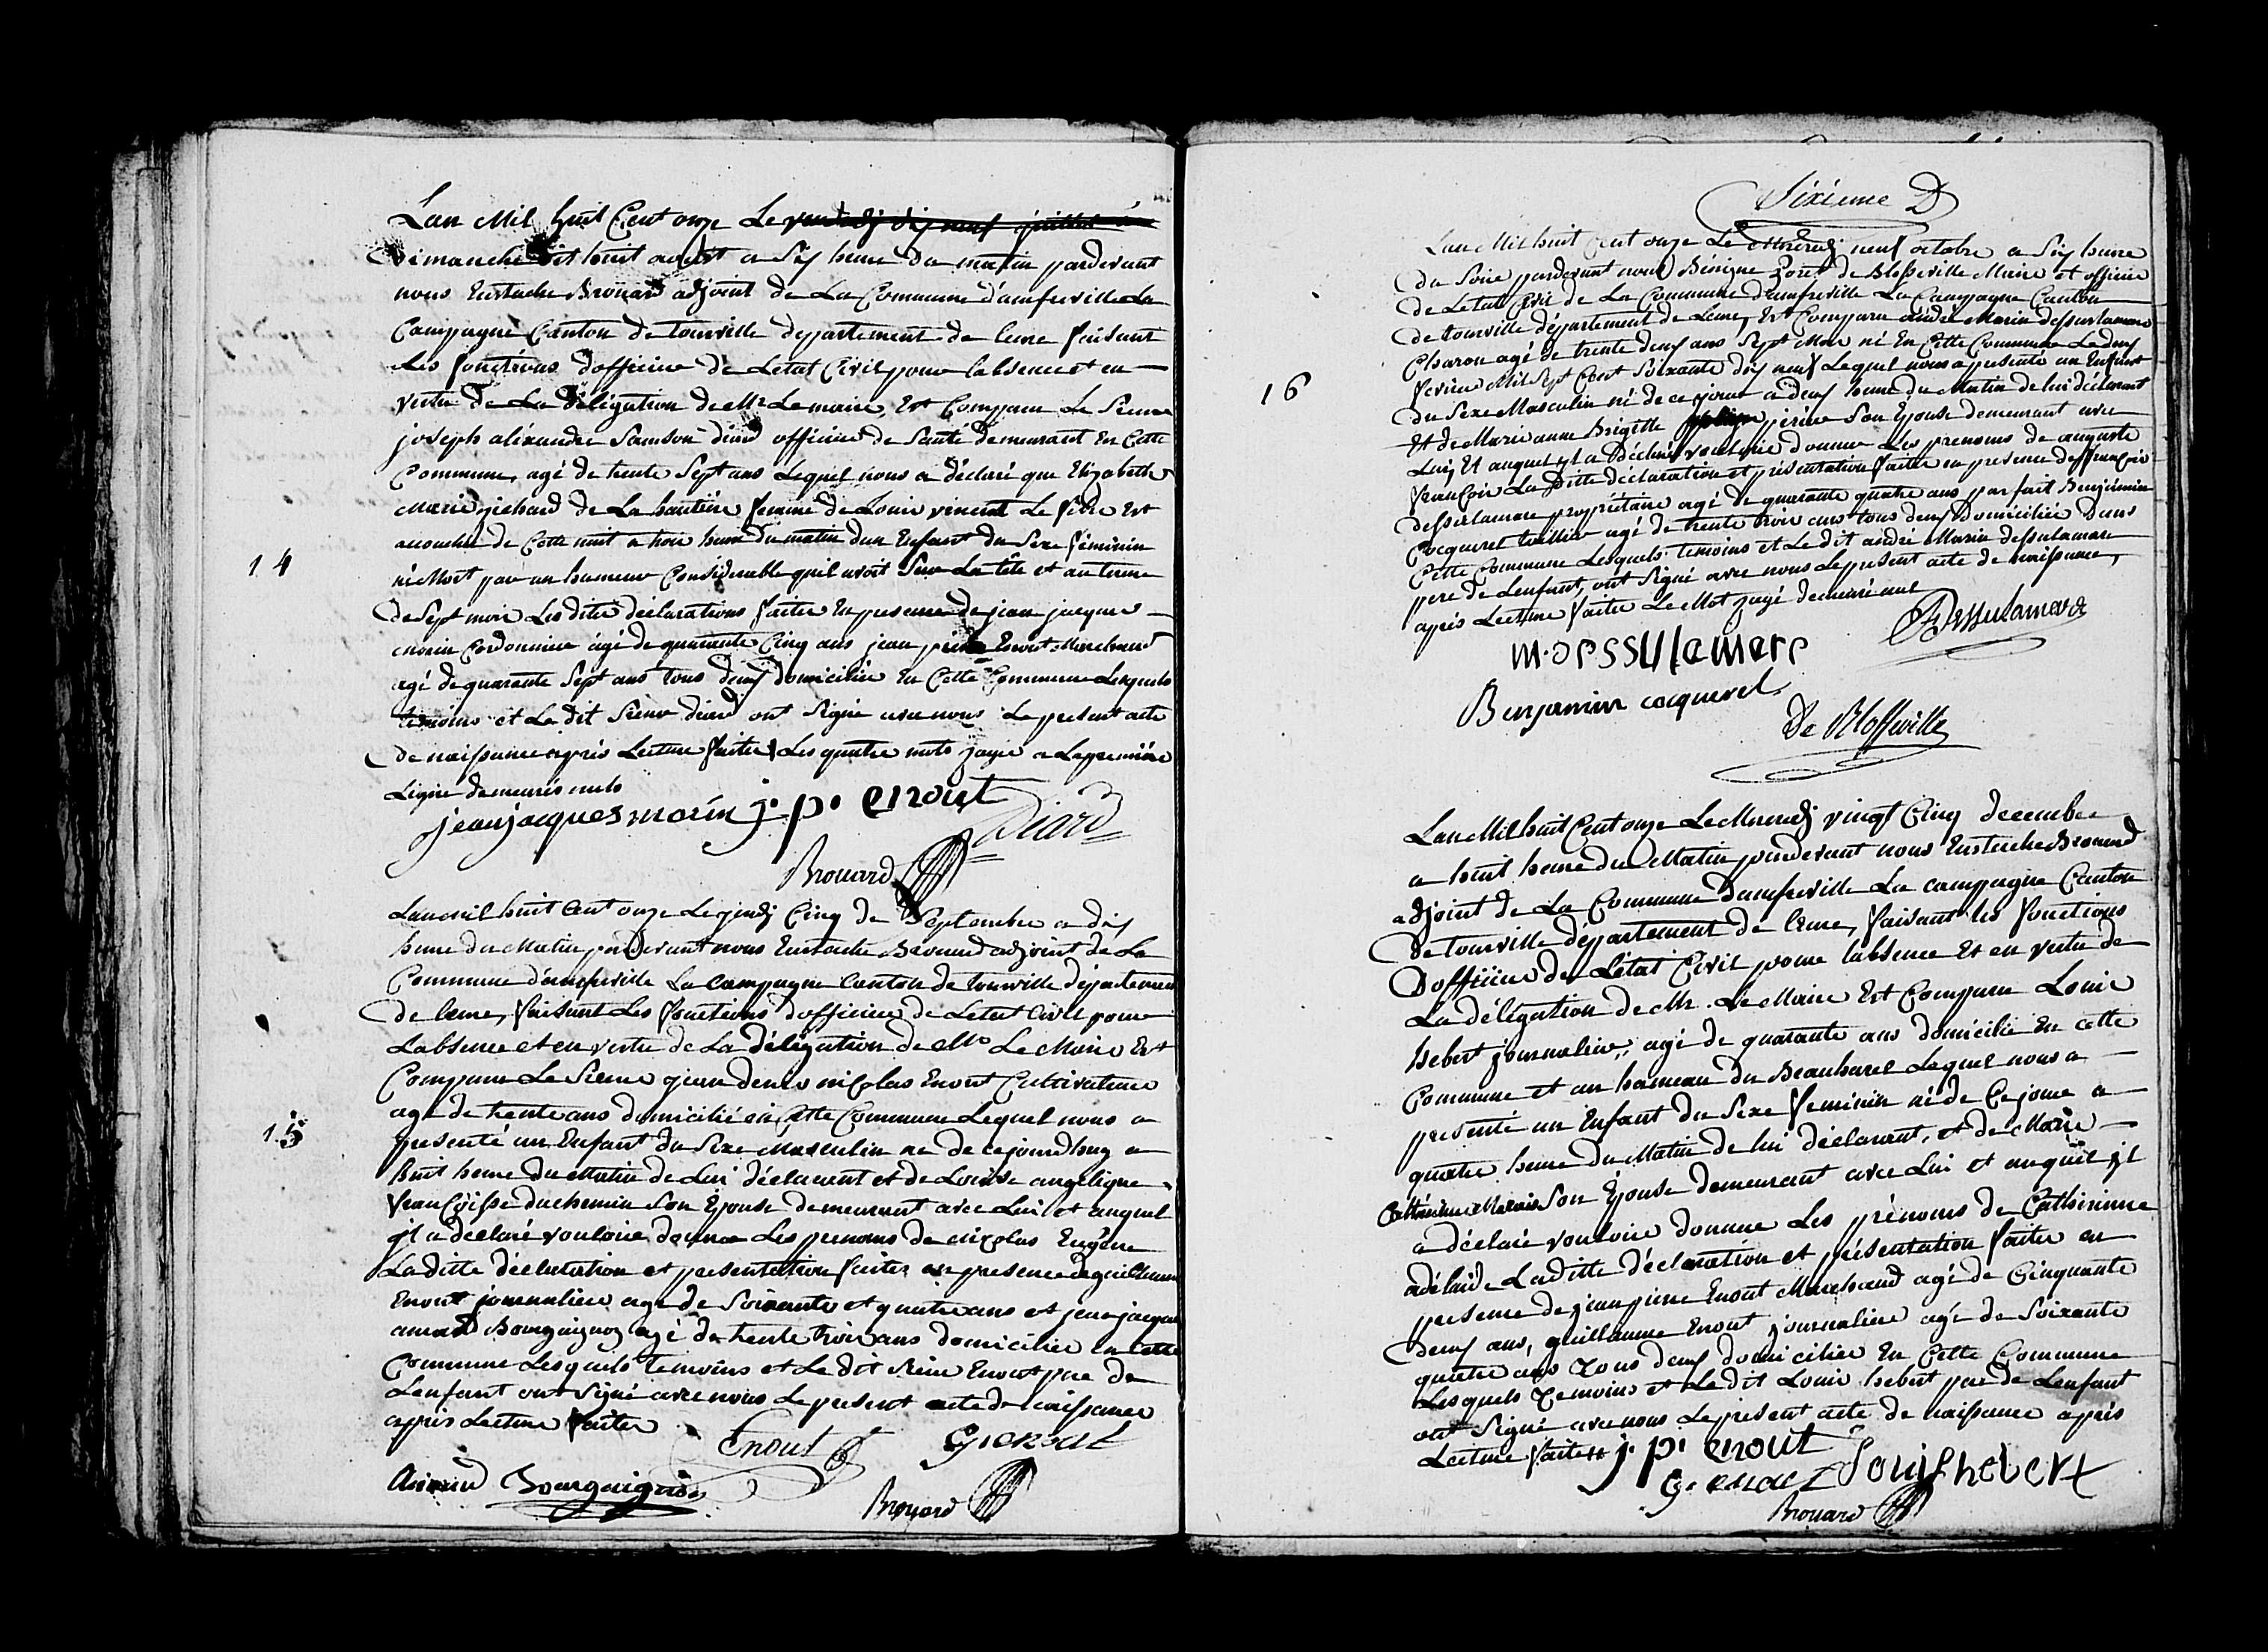 14
Lan Mil huit Cent onze Le vendredj dix neuf juillet
Dimanche dit huit aoust a Six heure du matin pardevant
nous Eustache Brouard adjoint de La Commune damfreville La
Campagne Canton de tourville departement de leure faisant
les fonctions dofficier de Letat Civil pour labsence et en
vertu de La déligation de Mr. Lemaire, Est Comparu Le Sieur
joseph aléxandre Samson diard officier de Santé demeurant En Cette
Commune, agé de trente Sept ans Lequel nous a déclaré que Elizabeth
Marie jichard de La hautière femme de Louis vincent Le
accouchée de Cette nuit a trois heure du matin dun Enfant du Sexe féminin
né Mort par un humeur Considerable quil avoit Sur La tête et au terme
de Sept mois Les dites déclarations faites En presence de jean jacques
morin Cordonnier agé de quarante Cinq ans jean pierre Enout Marchand
agé de quarante Sept ans tous deux domiciliés En Cette Commune Lesquels
temoins et Le dit Sieur diard ont Signé avec nous Le present acte
de naissance après Lecture faite Les quatre mots rayé a La première
Ligne demeurés nuls
jean jacques morin j. p. enout Diard
Brouard
15
Lan mil huit Cent onze Le jeudj Cinq de Septembre a dix
heure du Matin pardevant nous Eustache Brouard adjoint de La
Commune damfreville La Campagne Canton de tourville département
de leure, faisant Les fonctions dofficier de Letat Civil pour
Labsence et en vertu de La délégation de Mr. Le Maire Est
Comparu Le Sieur jean denis nicolas Enout Cultivateur
agé de trente ans domicilié en Cette Commune Lequel nous a
presenté un Enfant du Sexe Masculin né de cejourdhuy a
huit heure du Matin de Lui déclarant et de Louise angelique
françoise duchemin Son Epouse demeurant avec Lui et auquel
jl a declaré vouloir donner Les prenoms de nicolas Eugène
La ditte déclaration et presentation faites en presence de guillaume
Enout journalier agé de Soixante et quatre ans et jean jacques
amand Bourguignon agé de trente trois ans domiciliés En Cette
Commune Lesquels temoins et Le dit Sieur Enout pere de
Lenfant ont Signé avec nous Le present acte de naissance
après Lecture faite
Enout G. enout
Amand Bourguignon
Brouard
Sixieme D
16
Lan Mil huit Cent onze Le Mercredj neuf octobre a Six heure
du Soire pardevant nous Bénigne Poret de Blosseville Maire et officier
de Letat Civil de La Commune damfreville La Campagne Canton
de tourville département de Leure, Est Comparu andré Marin dessulamare
Charon agé de trente deux ans Sept Mois né En Cette Commune Le deux
fevrier Mil Sept Cent Soixante dix neuf Lequel nous a presenté un Enfant
du Sexe Masculin né de ce jour a deux heure du Matin de lui déclarant
Et de Marie anne Brigitte perier Son Epouse demeurant avec
Lui, Et auquel jl a déclaré vouloir donner Les prenoms de auguste
françois La ditte déclaration et présentation faite en presence de françois
dessulamare propriétaire agé de quarante quatre ans parfait Benjamin
Cocquerel toillier agé de trente trois ans tous deux Domiciliés Dans
Cette Commune Lesquels temoins et Le dit andré Marin dessulamare
pere de Lenfant, ont Signé avec nous Le present acte de naissance,
après Lecture faite Le Mot rayé demeuré nul
m. Dessulamare
Benjamin cocquerel
De Blosseville
Lan Mil huit Cent onze Le Mercredj vingt Cinq decembre
a huit heure du Matin pardevant nous Eustache Brouard
adjoint de La Commune Damfreville La campagne Canton
de tourville département de leure, faisant les fonctions
Dofficier de Létat Civil pour labsence Et en vertu de
La délégation de Mr. Le Maire Est Comparu Louis
hebert journalier, agé de quarante ans domicilié En cette
Commune et au hameau du Beauharel Lequel nous a
presenté un Enfant du Sexe feminin né de Ce jour a
quatre heure du Matin de lui déclarant, et de Marie
Catherine Marais Son Epouse demeurant avec Lui et auquel jl
a déclaré vouloir donner Les prénoms de Catherinne
adélaide La ditte déclaration et présentation faite en
presence de jean pierre Enout Marchand agé de Cinquante
deux ans, guillaume Enout journalier agé de Soixante
quatre ans Tous deux domiciliés En Cette Commune
Lesquels Temoins et Le dit Louis hebert pere de Lenfant
ont Signé avec nous Le present acte de naissance après
Lecture faite j. p. enout
G. enout Louis hebert
Brouard